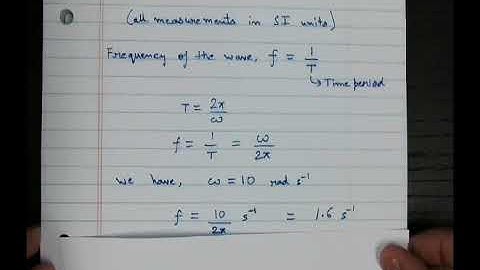 (all measurements in SI units)
Frequency of the wave, f = 1/T
↳ Time period
T = 2π/ω
f = 1/T = ω/2π
we have, ω = 10 rad s⁻¹
f = 10/2π s⁻¹ = 1.6 s⁻¹